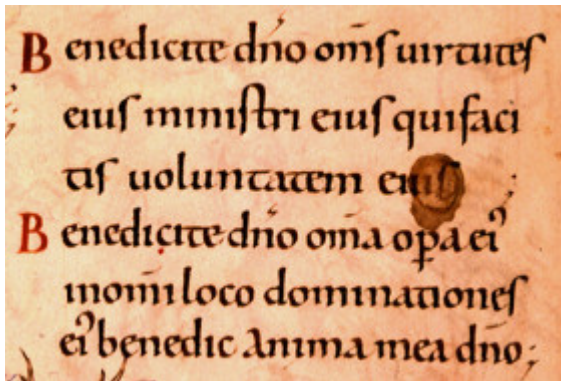 Benedicite dn̄o om̄s uirtutes
eius ministri eius qui faci
tis uoluntatem eius ;
Benedicite dn̄o om̄a op̄a ei᾽
inom̄i loco dominationes
ei᾽ benedic anima mea dn̄o ;